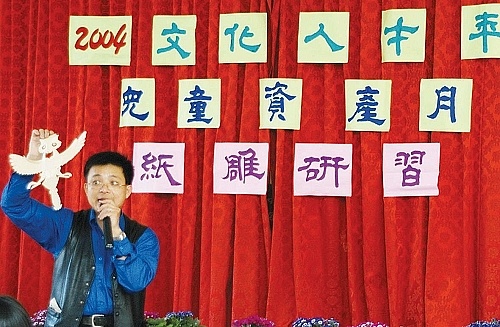 2004 文化人才年
兒童資產月
紙雕研習